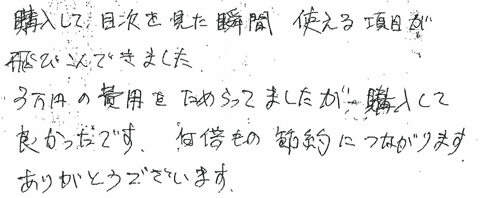 購入して目次を見た瞬間 使える項目が
飛びこんできました
3万円の費用をためらってましたが 購入して
良かったです. 何倍もの節約につながります
ありがとうございます.